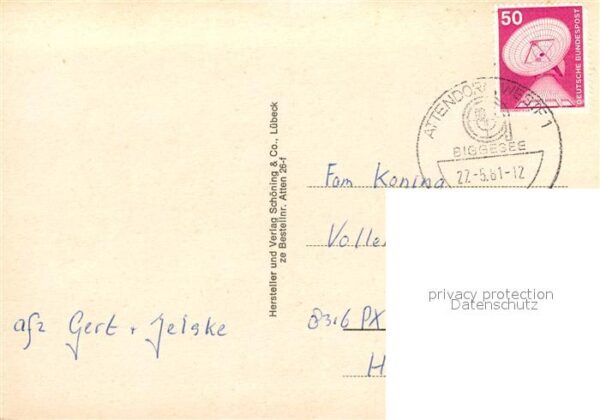 50
DEUTSCHE BUNDESPOST
ATTENDORN, WESTF 1
BIGGESEE
22.-5.81-12
Hersteller und Verlag Schöning & Co., Lübeck
ze Bestellnr. Atten 26-f
Fam Konina
Volle
8316 PX
H
afz Gert + Jelske
privacy protection
Datenschutz